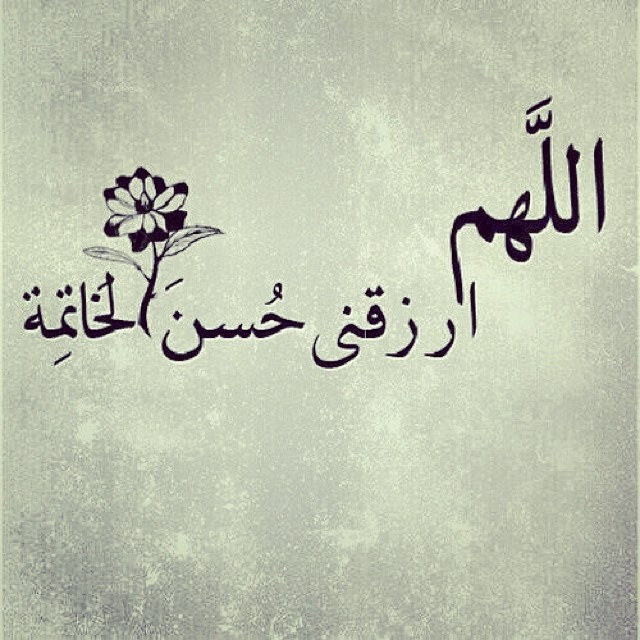 اللَّهم
ارزقنى حُسنَ الخاتمِة